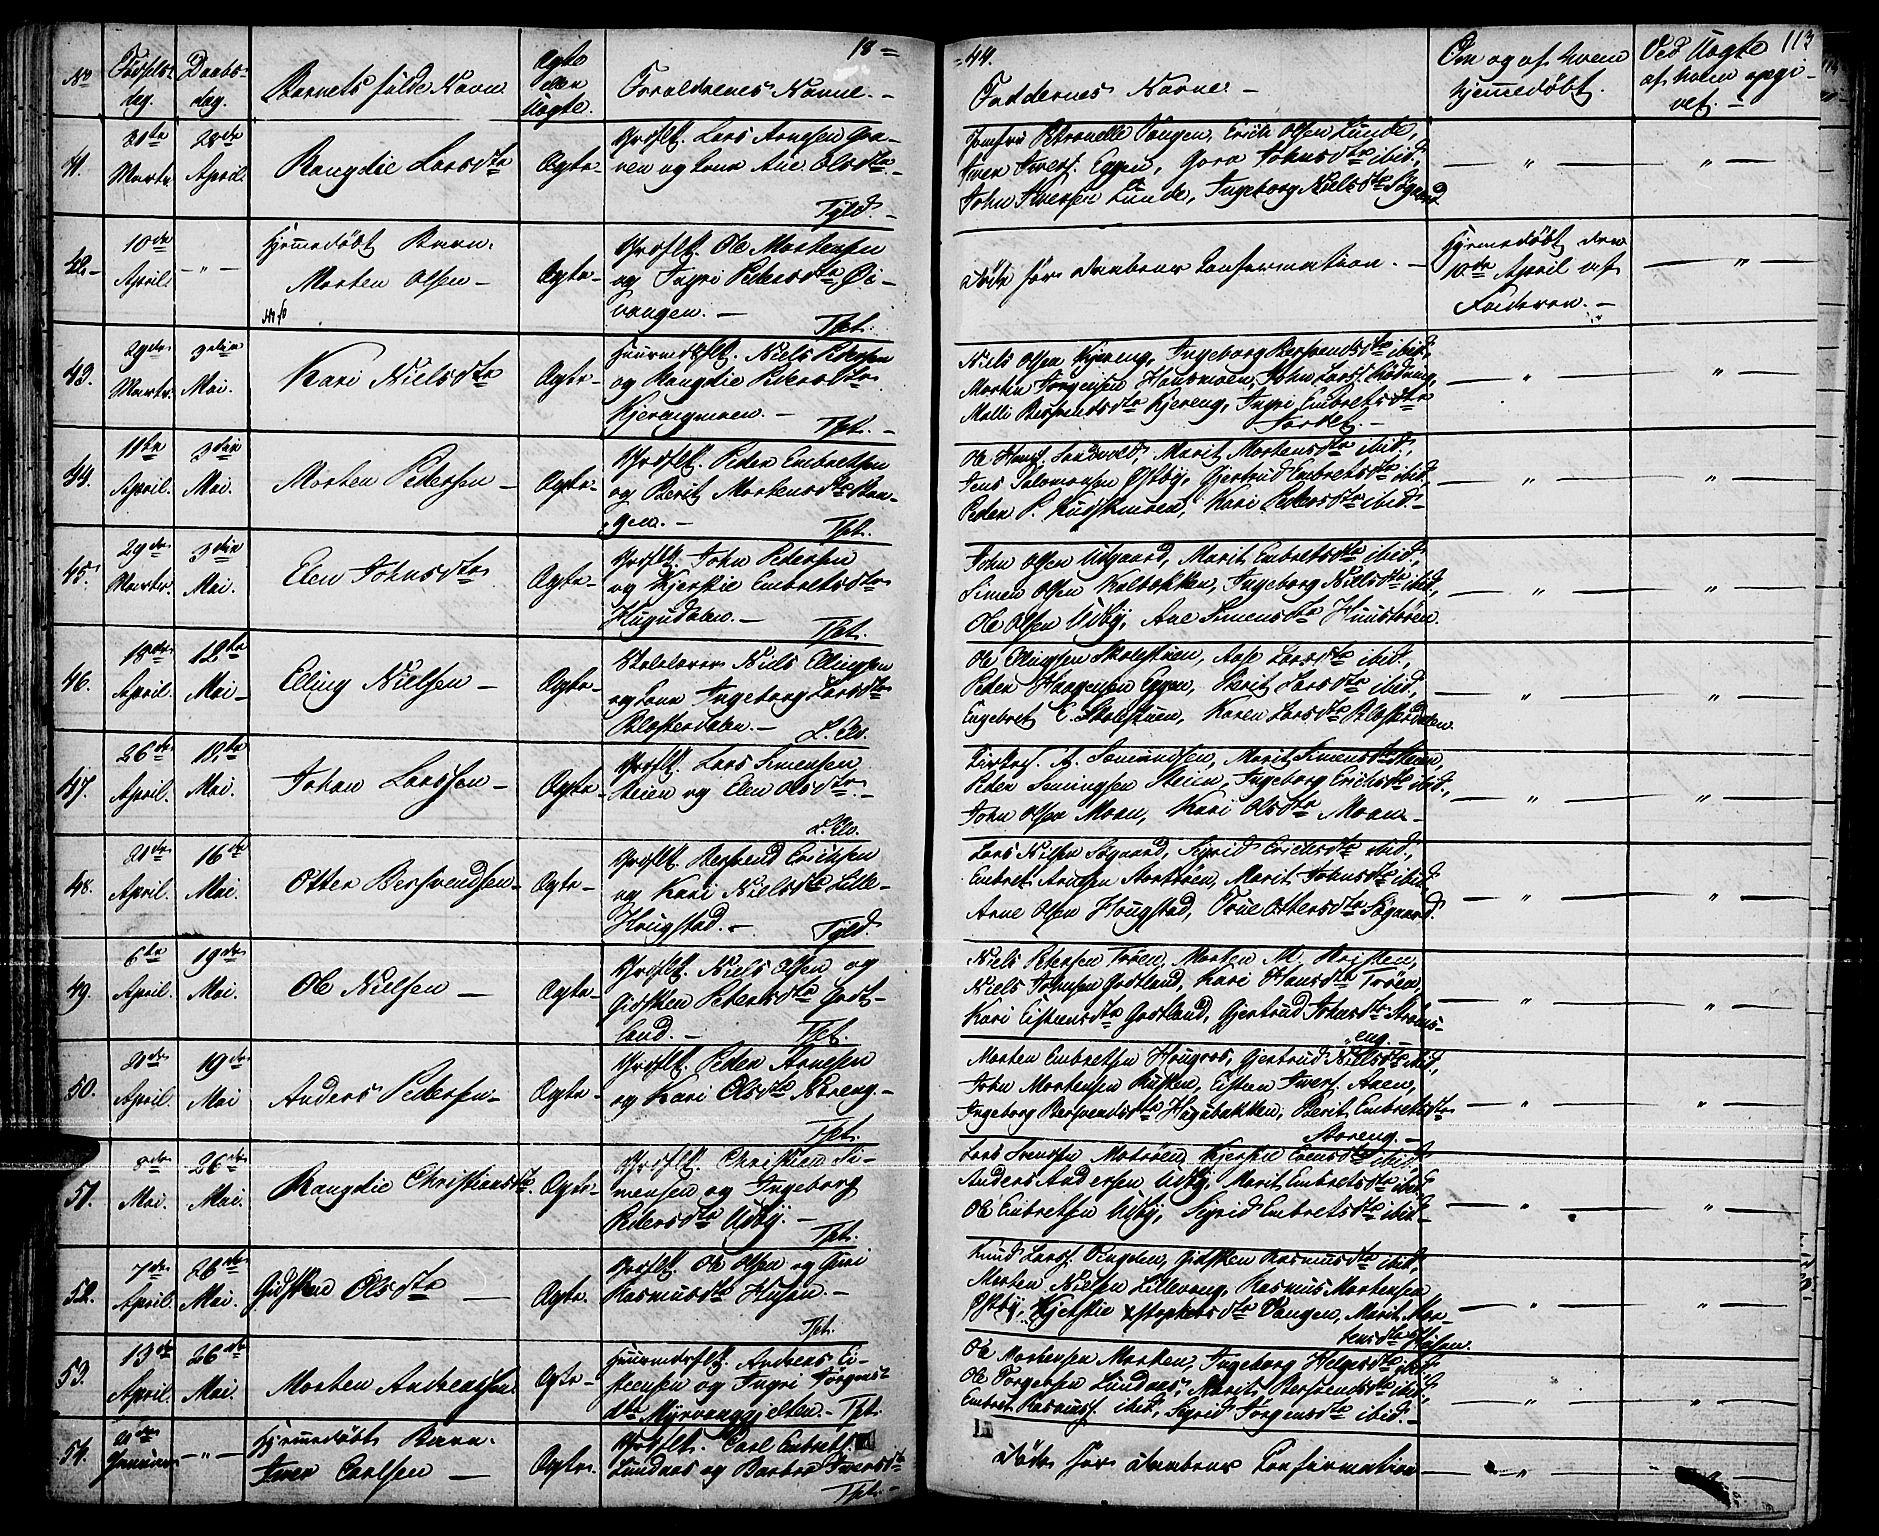 18-44. 113
No Fødsels- dag. Daabs- dag. Barnets fulde Navn Ægte eller Uægte. Forældrenes Navne. Faddernes Navne Om og af hvem hjemmedøbt. Ved Uægte af hvem opgivet.
41. 31te Marts 28de April Rangdie Larsdtr Ægte Grdflk. Lars Arnesen
ven og Kone Ane Olsdtr. Tyld.
Jomfru Petronelle Vangen, Erich Olsen Lunde,
Iver Iversf. Eggen, Goro Johnsdtr ibid,
John Iversen Lunde, Ingeborg Nielsdtr Søgaard
42. 10de April Hjemmedøbt Barn.
Morten Olsen Ægte Grdflk. Ole Mortensen
og Ingri Pedersdtr Øi-
vangen. Tpt.
Døde før Daabens Confirmation.
Hjemmedøbt den
10de April af
Faderen.
43. 29de Marts. 3die Mai. Kari Nielsdtr Ægte Huusmdsflk. Niels Pedersen
og Rangdie Pedersdtr
Kjerengmoen. Tpt.
Niels Olsen Kjereng, Ingeborg Bersvendsdtr ibid,
Morten Jørgensen Hansmoen, John Larsf.
Malli Bersvendsdtr Kjereng, Ingri Embretsdtr
44. 11te April. 3die Mai. Morten Pedersen Ægte Grdflk. Peder Embretsen
og Berit Mortensdtr Van-
gen. Tpt.
Ole Hansf. Sandvold, Marit Mortensdtr ibid,
Jens Salomonsen Østby, Gjertrud Embretsdtr ibid,
Peder P. Kudskmoen, Kari Pedersdtr ibid.
45. 29de Marts. 3die Mai. Elen Johnsdtr Ægte Grdflk. John Pedersen
og Kjerstie Embretsdtr
Hugudalen. Tpt.
John Olsen Udgaard, Marit Embretsdtr ibid,
Simen Olsen Kalbækken, Ingeborg Nielsdtr ibid,
Ole Olsen Udby, Ane Simensdtr
46. 18de April. 12te Mai Elling Nielsen Ægte Skolelærer Niels Ellingsen
og Kone Ingeborg Larsdtr
Klosterdalen. L. Elv.
Ole Ellingsen Skolestuen, Aase Larsdtr ibid,
Peder Haagensen Eggen, Berit Larsdtr ibid,
Engebret E. Skolestuen, Karen Larsdtr Klosterdalen
47. 26de April. 12te Mai. Johan Larssen Ægte Grdflk. Lars Simensen
Steien og Elen Olsdtr. L. Elv.
Kirkes. A. Simundsen, Marit Simensdtr Steien,
Peder Semingsen Steien, Ingeborg Erichsdtr ibid,
John Olsen Moan, Kari Olsdtr Moan.
48. 21de April. 16de Mai Otter Bersvendsen Ægte Grdflk. Bersvend Erichsen
og Kari Nielsdtr Lille-
Hougstad. Tyld.
Lars Nilsen Søgaard, Sigrid Erichsdtr ibid,
Embret Arnesen Stortrøen, Marit Johnsdtr ibid,
Arne Olsen Hougstad, True Ottersdtr Søgaard.
49. 6te April. 19de Mai. Ole Nielsen Ægte Grdflk. Niels Olsen og
Gidsken Pedersdtr Godt-
land. Tpt.
Niels Petersen Trøen, Morten M.
Niels Johnsen Godtland, Kari Hansdtr Trøen,
Kari Eistensdtr Godtland, Gjertrud Johnsdtr Strøms-
eng.
50. 21de April. 19de Mai Anders Pedersen Ægte Grdflk. Peder Arnesen
og Kari Olsdtr Storeng. Tpt.
Morten Embretsen Hougros, Gjertrud Nielsdtr ibid,
John Mortensen Rusten, Eisten Iversf. Aaen,
Ingeborg Bersvendsdtr Hugubakken, Berit Embretsdtr
Storeng.
51. 8de Mai. 26de Mai. Rangdie Christiansdtr Ægte Grdflk. Christian Si-
mensen og Ingeborg
Pedersdtr Udby. Tpt.
Lars Svensen Motrøen, Kjerstie Evensdtr ibid,
Anders Andersen Udby, Marit Embretsdtr ibid,
Ole Embretsen Udby, Sigrid Embretsdtr ibid.
52. 7de April. 26de Mai. Gidsken Olsdtr Ægte Grdflk. Ole Olsen og Guri
Rasmusdtr Husan. Tpt.
Knud Larsf. Engelen, Gidsken Rasmusdtr ibid,
Morten Nielsen Lillevang, Rasmus Mortensen
Østby, Kjerstie Estophersdtr Vangen, Marit Mor-
tensdtr Husan.
53. 13de April. 26de Mai. Morten Andreassen Ægte Huusmdsflk. Andreas Ei-
steensen og Ingri Jørgens-
dtr Myrvangsjelten. Tpt.
Ole Mortensen Morken, Ingeborg Helgesdtr ibid,
Ole Torgersen Lundnæs, Marit Bersvendsdtr ibid,
Embret Rasmusf. ibid, Sigrid Jørgensdtr ibid.
54. Januar Hjemmedøbt Barn.
Iver Carlsen Ægte. Grdflk. Carl Embretsf.
Lundnæs og Barbro Iversdtr Tpt.
Døde før Daabens Confirmation